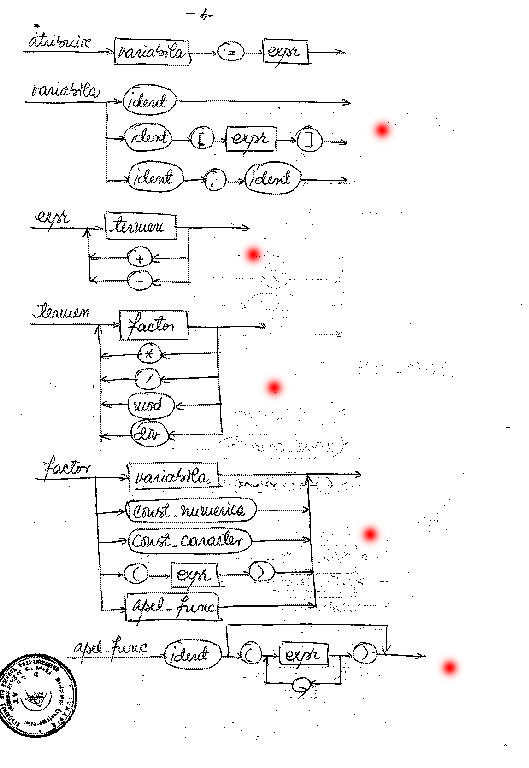 atribuire variabila := expr
variabila ident
ident [ expr ]
ident . ident
expr termen
+
-
termen factor
*
/
mod
div
factor variabila
const_numerica
const_caracter
( expr )
apel_func
apel_func ident ( expr )
,